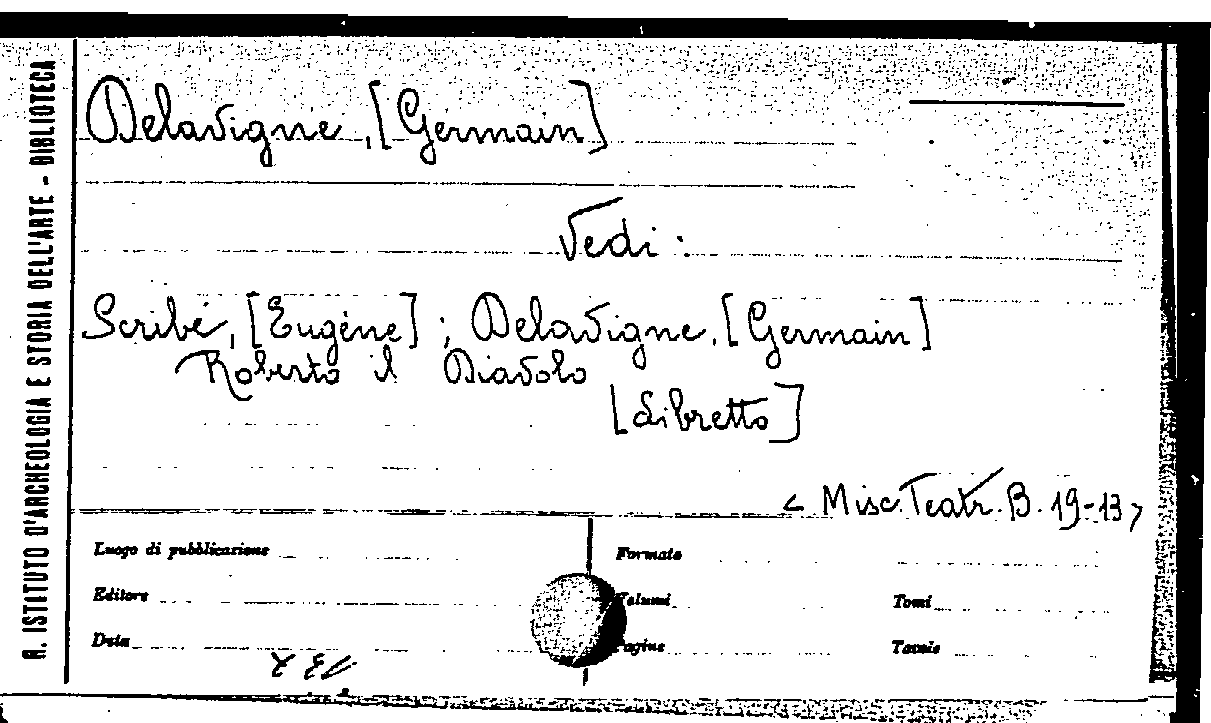 R. ISTITUTO D'ARCHEOLOGIA E STORIA DELL'ARTE - BIBLIOTECA
Delavigne, [Germain]
Vedi:
Scribé, [Eugéne]; Delavigne, [Germain]
Roberto il Diavolo
[Libretto]
< Misc. Teatr. B. 19-13>
Luogo di pubblicazione
Formato
Editore
Volumi
Tomi
Data
Pagine
Tavole